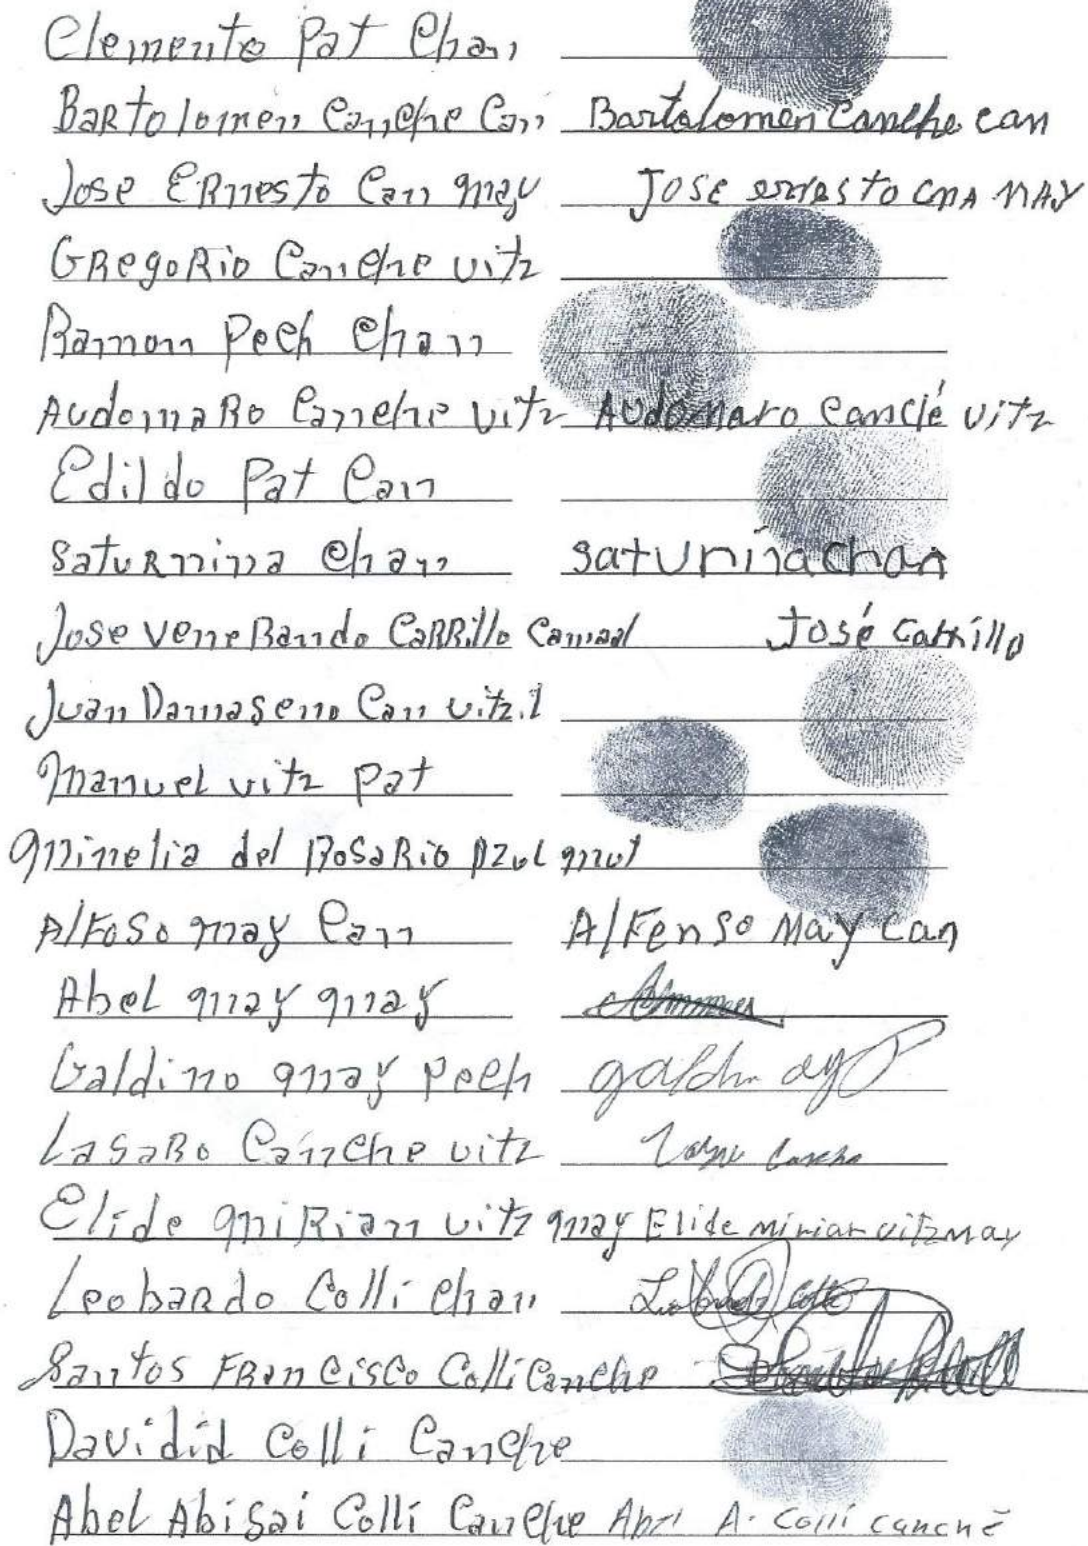 Clemente Pat Chan
Bartolomen Canche Can Bartolomen Canche can
Jose Ernesto Can may Jose ernesto CAN MAY
Gregorio Canche vitz
Ramon Pech Chan
Audomaro Canche vitz Audomaro Canclé vitz
Edildo Pat Can
Saturnina Chan saturninachan
Jose veneRando Carrillo Camaal José Carrillo
Juan Damaseno Can vitzil
Manuel vitz pat
Minelia del Rosario Azul mut
Alfoso may Can Alfenso May Can
Abel may may
Galdino may pech
Lasaro Canche vitz Canche
Elide miRian vitz may Elide miriar vitz may
Leobardo Colli Chan
Santos Francisco Colli Canche
Davidid Colli Canche
Abel Abisai Colli Canche Abel A. Colli canche